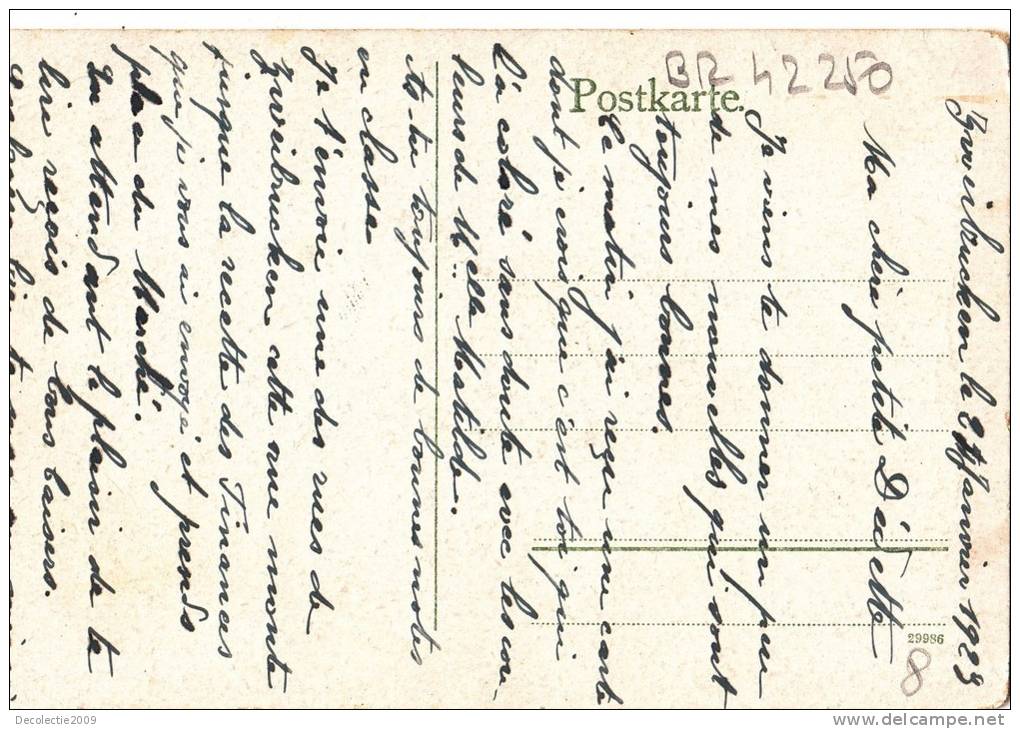 BR 42250
Postkarte.
Zweibrucken le 27 Janvier 1923
Ma chère petite Dédette
Je viens te donner un peu
de mes nouvelles qui sont
toujours bonnes.
Ce matin j'ai reçu une carte
dont je crois que c'est toi qui
l'a coloré sans doute avec les cou-
leurs de Melle Matilde.
As-tu toujours de bonnes notes
en classe
Je t'envoie une des rues de
Zweibrucken cette rue monte
jusque la recette des Finances
que je vous ai envoyé et prends
place du Marché.
En attendant le plaisir de te
lire reçois de bons baisers.
29986
8
Decolectie2009
www.delcampe.net